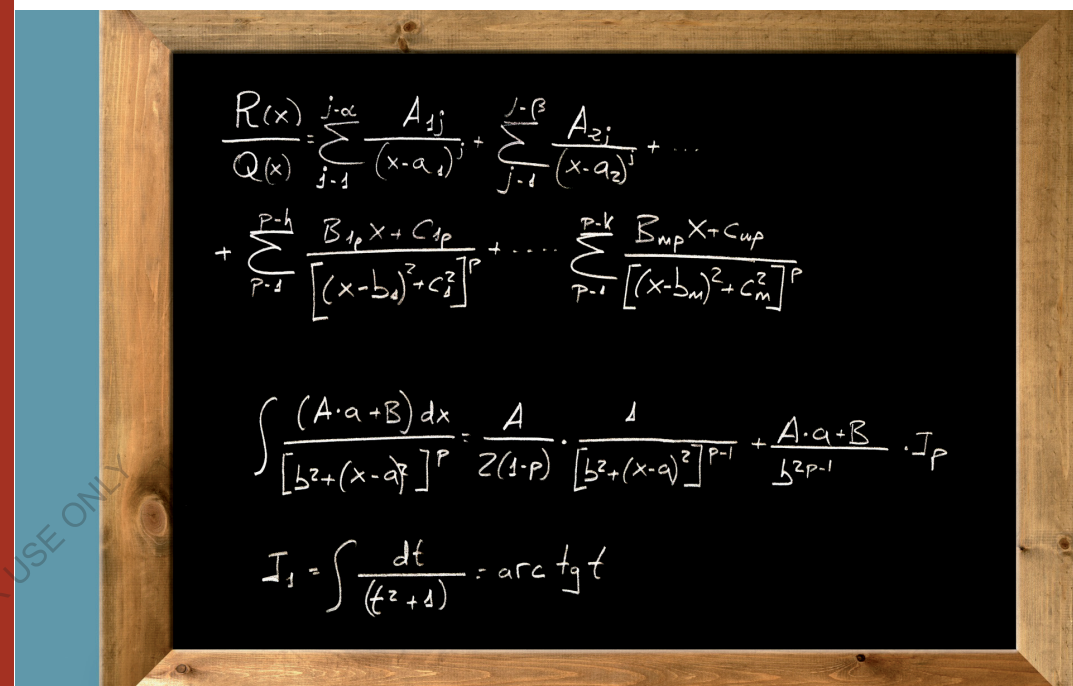 R(x)/Q(x) = ∑_{j-1}^{j-α} A_{1j}/(x-a_1)^j + ∑_{j-1}^{j-β} A_{2j}/(x-a_2)^j + ...
+ ∑_{p-1}^{p-h} (B_{1p}x + C_{1p})/[(x-b_1)^2+c_1^2]^p + .... ∑_{p-1}^{p-k} (B_{mp}x + C_{mp})/[(x-b_m)^2+c_m^2]^p
∫ (A·a+B)dx/[b^2+(x-a)^2]^p = A/2(1-p) · 1/[b^2+(x-a)^2]^{p-1} + A·a+B/b^{2p-1} · I_p
I_1 = ∫ dt/(t^2+1) = arc tg t
USE ONLY